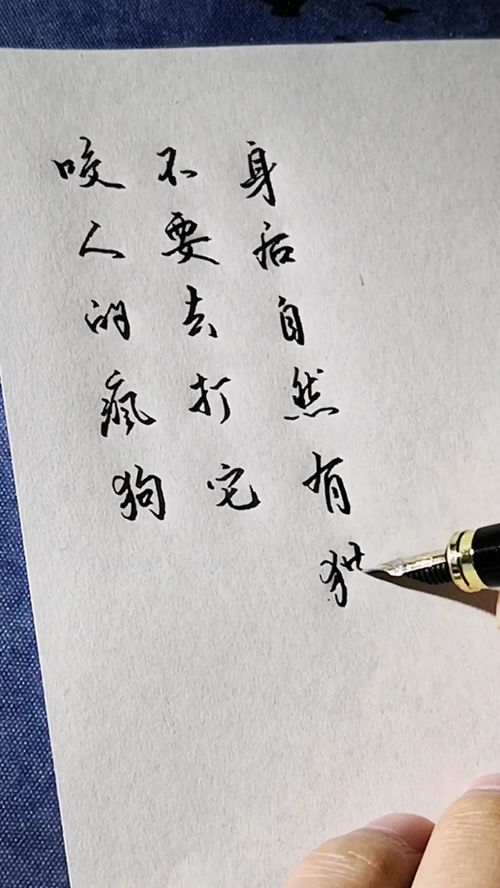 咬人的疯狗
不要去打它
身后自然有